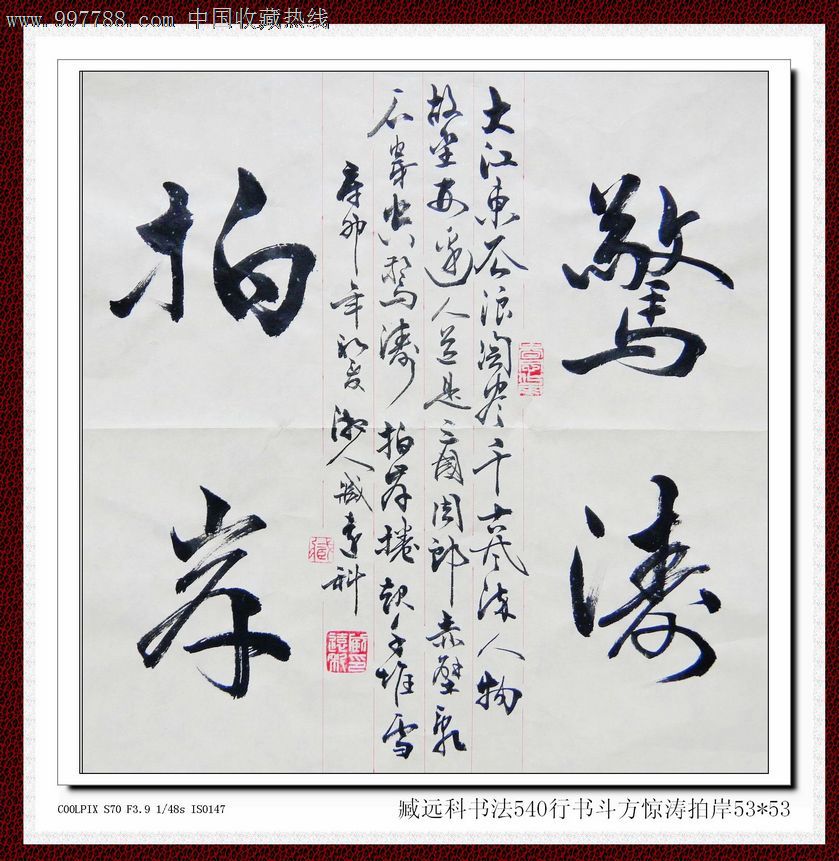 www.997788.com 中国收藏热线
驚濤
拍岸
大江東去浪淘尽千古风流人物
故垒西邊人道是三國周郎赤壁乱
石穿空驚濤拍岸捲起千堆雪
辛卯年初夏 人臧遠科
COOLPIX S70 F3.9 1/48s ISO147
臧远科书法540行书斗方惊涛拍岸53*53